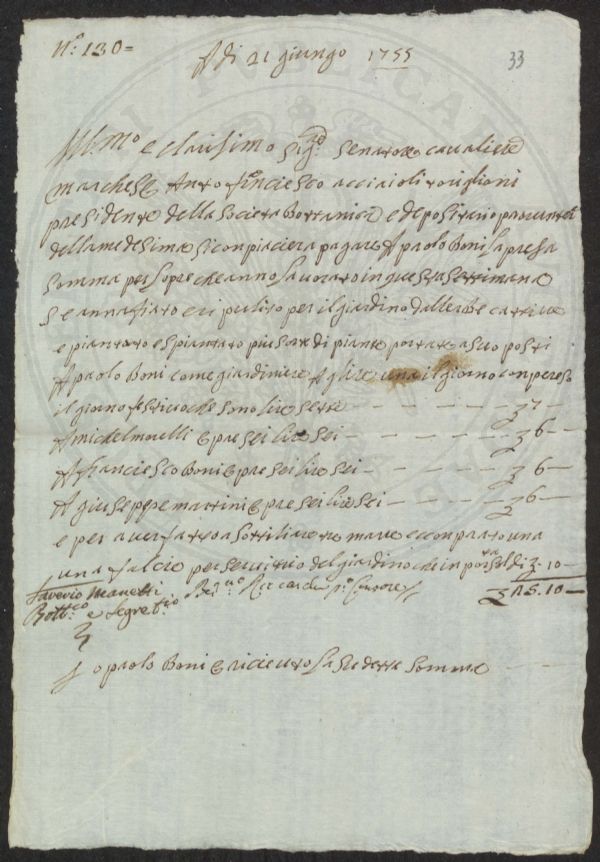 N.º 130=
A di 21 giungo 1755
33
Ill.mo e clarisimo Sig.re Senatore cavaliere
marchese Anto.o francesco acciaioli torigljoni
presidente della Societa Bottanica e depositario pro
della medesima si conpiacera pagare A paolo Boni la presa
somma per lopre che anno lavorato in questa settimana
Se annafiato e ri pulito per il giardino dallerbe cattive
e piantato e spiantato piu sorte di piante portate a suo posti
A paolo Boni come giardiniere A lire una il giorno conpreso
il giorno festivo che sono lire sette — — — 7 —
A michel morelli opre sei lire sei — — — 6 —
A franciesco Boni opre sei lire sei — — — 6 —
A giuseppe martini opre sei lire sei — — — 6 —
e per aver fatto asottiliare tre mare e conprato una
una falcie per servitio del giardino che inporta sol di 10 —
25.10 —
Saverio Manetti
Bott.co e Segret.rio
Ben.no Riccardi p.o Censore
Io paolo Boni o riceuto la sudetta somma — —